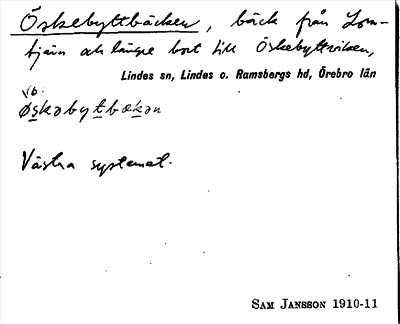 Öskebyttbäcken, bäck från Lom-
tjärn och längre bort till Öskebyttviken,
Lindes sn, Lindes o. Ramsbergs hd, Örebro län
öskəbytbəkən
Västra systemet.
SAM JANSSON 1910-11